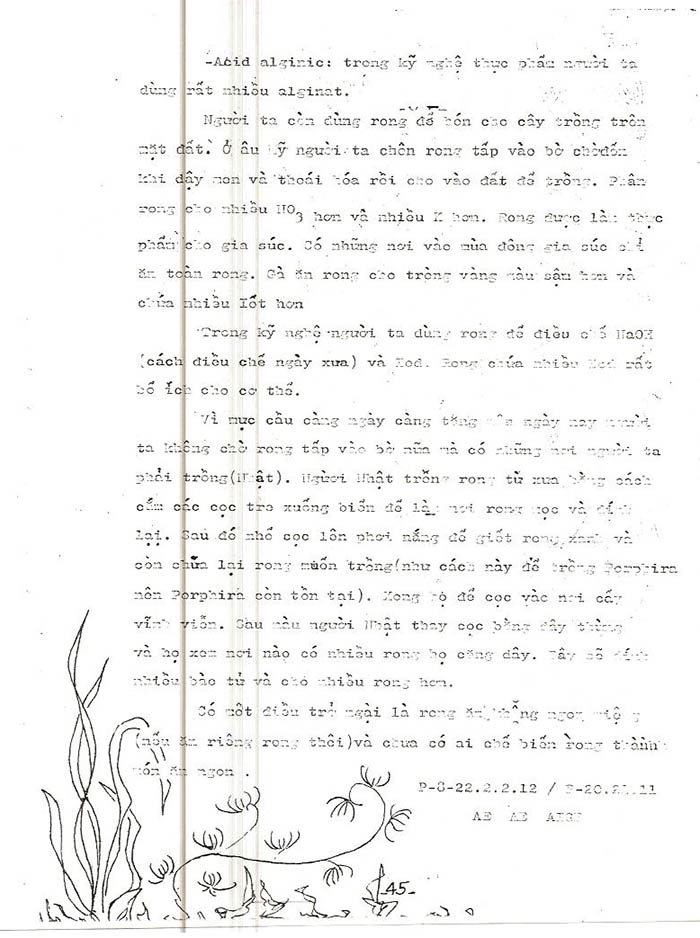 -Acid alginic: trong kỹ nghệ thực phẩm người ta
dùng rất nhiều alginat.
Người ta còn dùng rong để bón cho cây trồng trên
mặt đất. Ở âu kỹ người ta chôn rong tấp vào bờ chờđến
khi dậy men và thoái hóa rồi cho vào đất để trồng. Phân
rong cho nhiều NO3 hơn và nhiều K hơn. Rong được làm thực
phẩm cho gia súc. Có những nơi vào mùa đông gia súc chỉ
ăn toàn rong. Gà ăn rong cho tròng vàng màu sậm hơn và
chứa nhiều Iốt hơn
Trong kỹ nghệ người ta dùng rong để điều chế NaOH
(cách điều chế ngày xưa) và Iod. Rong chứa nhiều Iod rất
bổ ích cho cơ thể.
Vì mực cầu càng ngày càng tăng nên ngày nay người
ta không chờ rong tấp vào bờ nữa mà có những nơi người ta
phải trồng(Nhật). Người Nhật trồng rong từ xưa bằng cách
cắm các cọc tre xuống biển để làm nơi rong mọc và dính
lại. Sau đó nhổ cọc lên phơi nắng để giết rong xanh và
còn chừa lại rong muốn trồng(như cách này để trồng Porphira
nên Porphira còn tồn tại). Xong họ để cọc vào nơi cấy
vĩnh viễn. Sau này người Nhật thay cọc bằng dây thừng
và họ xem nơi nào có nhiều rong họ căng dây. Dây sẽ dính
nhiều bào tử và cho nhiều rong hơn.
Có một điều trở ngại là rong ăn không ngon miệng
(nếu ăn riêng rong thôi)và chưa có ai chế biến rong thành
món ăn ngon .
P-8-22.2.2.12 /
AE AE
-45-